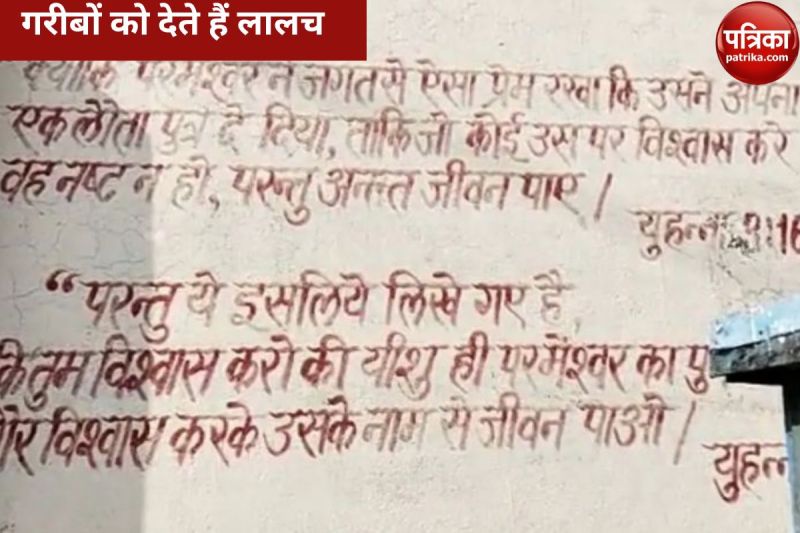 गरीबों को देते हैं लालच
पत्रिका
patrika.com
क्योंकि परमेश्वर ने जगत से ऐसा प्रेम रखा कि उसने अपना
एकलौता पुत्र दे दिया, ताकि जो कोई उस पर विश्वास करे
वह नष्ट न हो, परन्तु अनन्त जीवन पाए।
युहन्ना 3:16
“परन्तु ये इसलिये लिखे गए है,
कि तुम विश्वास करो की यीशु ही परमेश्वर का पु
और विश्वास करके उसके नाम से जीवन पाओ।
युहन्